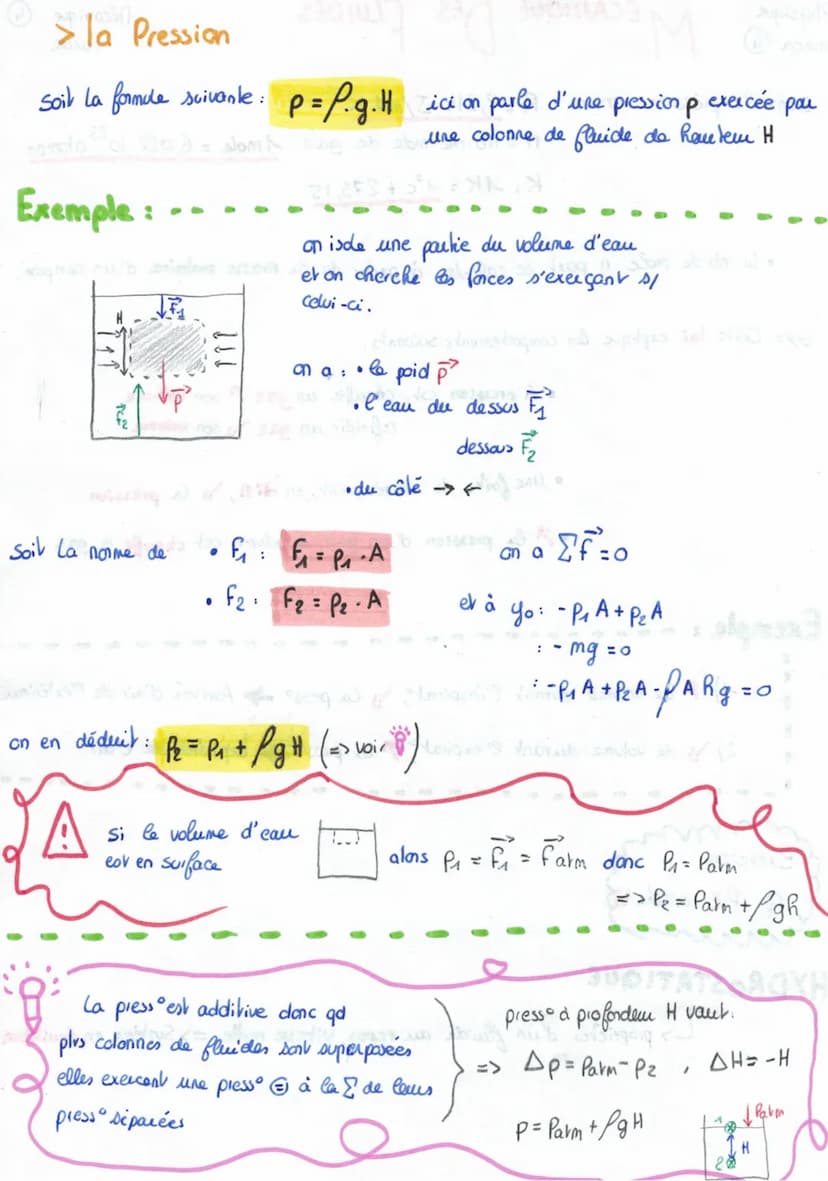 > la Pression
Soit la formule suivante : p = ρ.g.H ici on parle d'une pression p exercée par
une colonne de fluide de hauteur H
Exemple :
on isole une partie du volume d'eau
et on cherche les forces s'exerçant s/
celui-ci.
H F₁
P
F₂
on a : • le poid p
• l'eau du dessus F₁
dessous F₂
• du côté → ←
Soit la norme de • F₁ : F₁ = p₁ . A
• F₂ : F₂ = p₂ . A
on a Σf = 0
et à yo : - p₁ A + p₂ A
: - mg = 0
: - p₁ A + p₂ A - ρ A h g = 0
on en déduit : p₂ = p₁ + ρgH (=> voir )
! si le volume d'eau
est en surface
alors p₁ = F₁ = Fatm donc p₁ = patm
=> p₂ = patm + ρgh
La press° est additive donc qd
plrs colonnes de fluides sont superposées
elles exercent une press° = à la Σ de leurs
press° séparées
press° à profondeur H vaut :
=> Δp = patm - p₂ , ΔH = -H
p = patm + ρgH
1 Patm
H
2